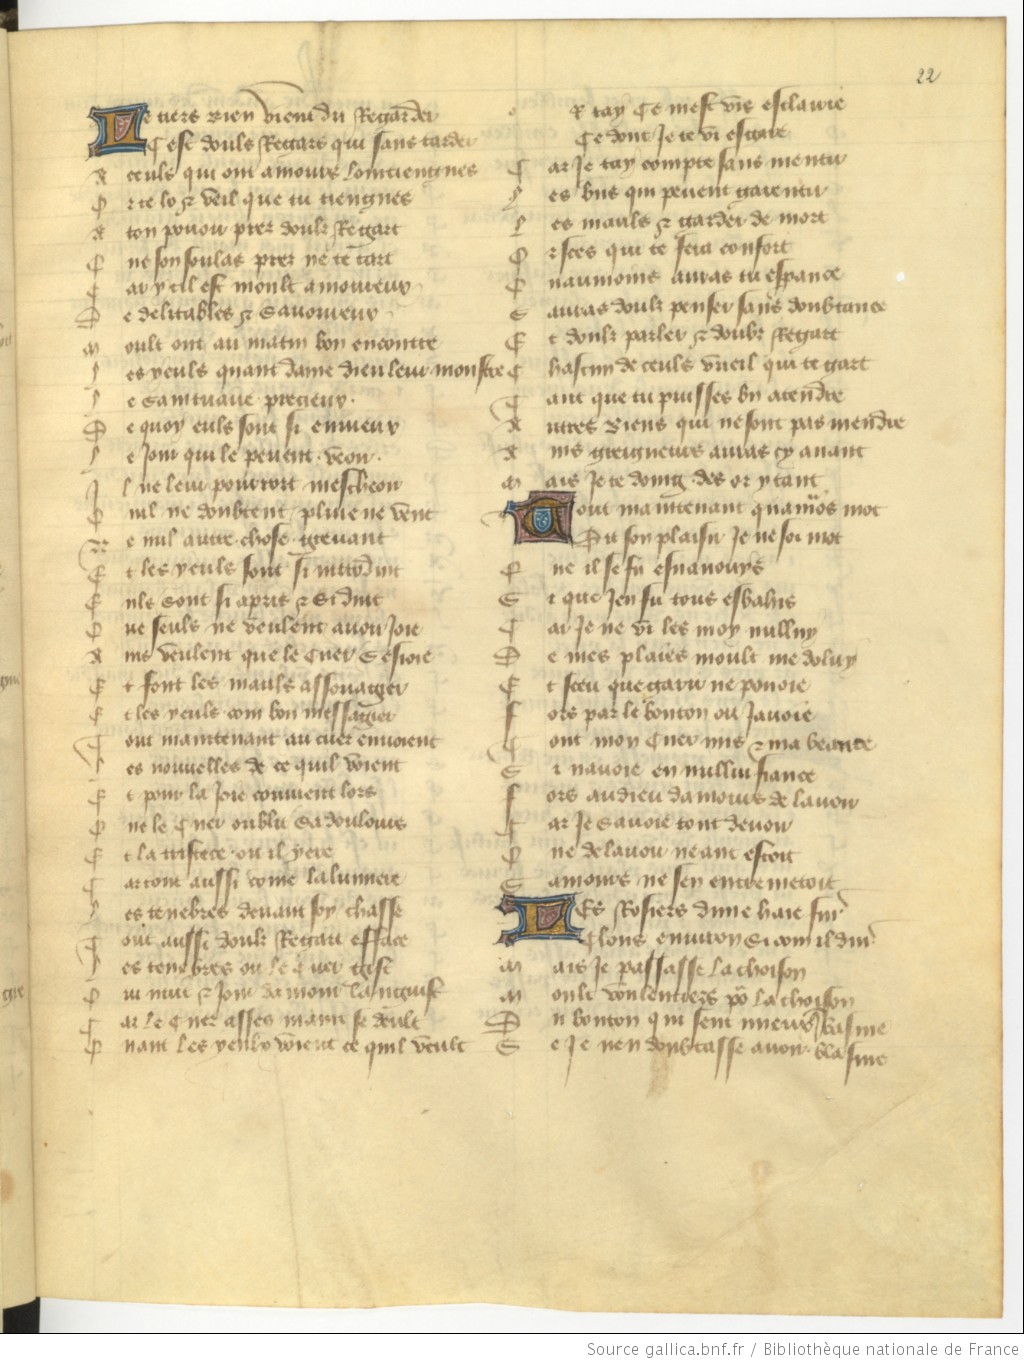 22
Le tiers bien vient du Regarder
C est douls Regars qui sans tarder
A ceuls qui ont amours lointiengnes
O r te lo et veil que tu tiengnes
A ton pouoir pres doulz Regart
Q ue son soulas pres ne te tart
C ar y til est moult amoureux
D e delitables et Sauoureux
M oult ont au matin bon encontre
L es yeuls quant dame dieu leur monstre
L e Saintuaire precieux
D e quoy euls sont si enuieux
L e Jour qui le peuent veoir
I l ne leur pourroit mescheoir
N ul ne doubtent pluie ne vent
N e nul autre chose greuant
E t les yeuls sont si
E uls sont si apris et Si duit
Q ue seuls ne veulent auoir Joie
A ins veulent que le Cuer Sesioie
E t font les mauls assouaigier
C t les yeuls com bon messagier
T out maintenant au cuer enuoient
L es nouuelles de ce quil voient
E t pour la Joie conuient lors
Q ue le Cuer oublit Sa doulours
E t la tristece ou il yere
C ar tout aussi come la lumiere
L es tenebres deuant soy chasse
T out aussi doulz Regart efface
L es tenebres ou le Cuer gist
Q ui nuit et Jour damour languist
C ar le Cuer asses mains se deult
Q uant les yeulx voient ce quil veult
O R tay Ce mest vis esclairie
Ce dont Je te vi esgare
C ar Je tay compte sans mentir
L es biens qui peuent garentir
L es mauls et garder de mort
O r sces qui te fera confort
A u moins auras tu esperance
S auras doulz penser sans doubtance
E t doulz parler et doulz Regart
C hascun de ceuls vueil qui te gart
T ant que tu puisses bn atendre
A utres biens qui ne sont pas mendre
A ins greigneurs auras cy auant
M ais Je te doing des or y tant
Tout maintenant quamours mot
Dit son plaisir Je ne soi mot
Q ue il se fu esuanouys
S i que Jen fu tous esbahis
C ar Je ne vi les moy nulluy
D e mes plaies moult me doluy
E t sceu que garir ne pouoie
F ors par le bouton ou Jauoie
T out mon Cuer mis et ma beance
S i nauoie en nulluy fiance
F ors au dieu damours de lauoir
C ar Je Sauoie tout deuoir
Q ue de lauoir neant estoit
S amours ne sen entremetoit
LEs Rosiers dune haie fur
Clous enuiron Si com il dur
M ais Je passasse la choison
M oult voulentiers pour la choison
D u bouton qui sent mieux basme
S e Je nen doubtasse auoir blasme
Source gallica.bnf.fr / Bibliothèque nationale de France